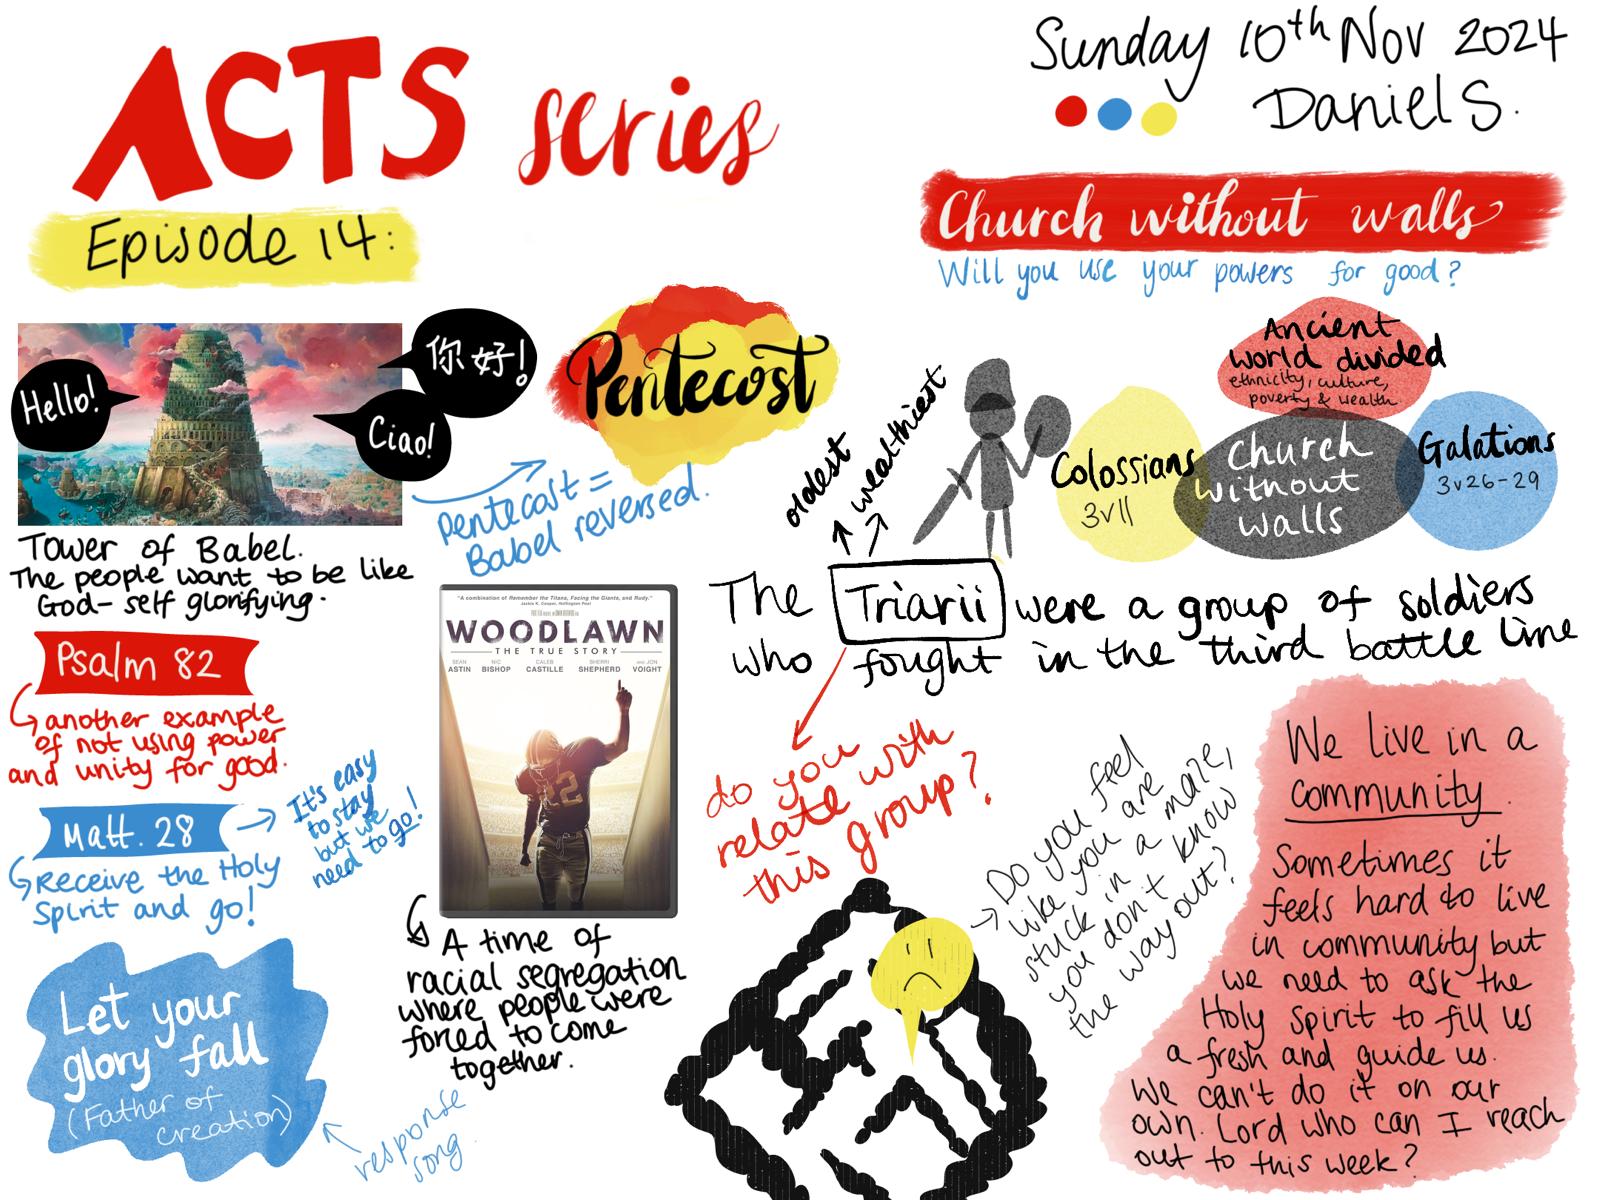 ACTS series
Episode 14:
Sunday 10th Nov 2024
Daniel S.
Church without walls
Will you use your powers for good?
Hello!
你好!
Ciao!
Tower of Babel.
The people want to be like
God- self glorifying.
Pentecost
Pentecost =
Babel reversed.
Psalm 82
another example
of not using power
and unity for good.
Matt. 28
It's easy
to stay
but we
need to go!
Receive the Holy
Spirit and go!
Let your
glory fall
(Father of
creation)
response
song.
"A combination of Remember the Titans, Facing the Giants, and Rudy."
WOODLAWN
THE TRUE STORY
SEAN ASTIN
NIC BISHOP
CALEB CASTILLE
SHERRI SHEPHERD
AND JON VOIGHT
A time of
racial segregation
where people were
forced to come
together.
oldest
wealthiest
Ancient
world divided
ethnicity, culture,
poverty & wealth
Colossians
3v11
Church
without
walls
Galations
3v26-29
The Triarii were a group of soldiers
who fought in the third battle line
do you
relate with
this group?
Do you feel
like you are
stuck in a maze,
you don't know
the way out?
We live in a
community.
Sometimes it
feels hard to live
in community but
we need to ask the
Holy Spirit to fill us
a fresh and guide us.
We can't do it on our
own. Lord who can I reach
out to this week?